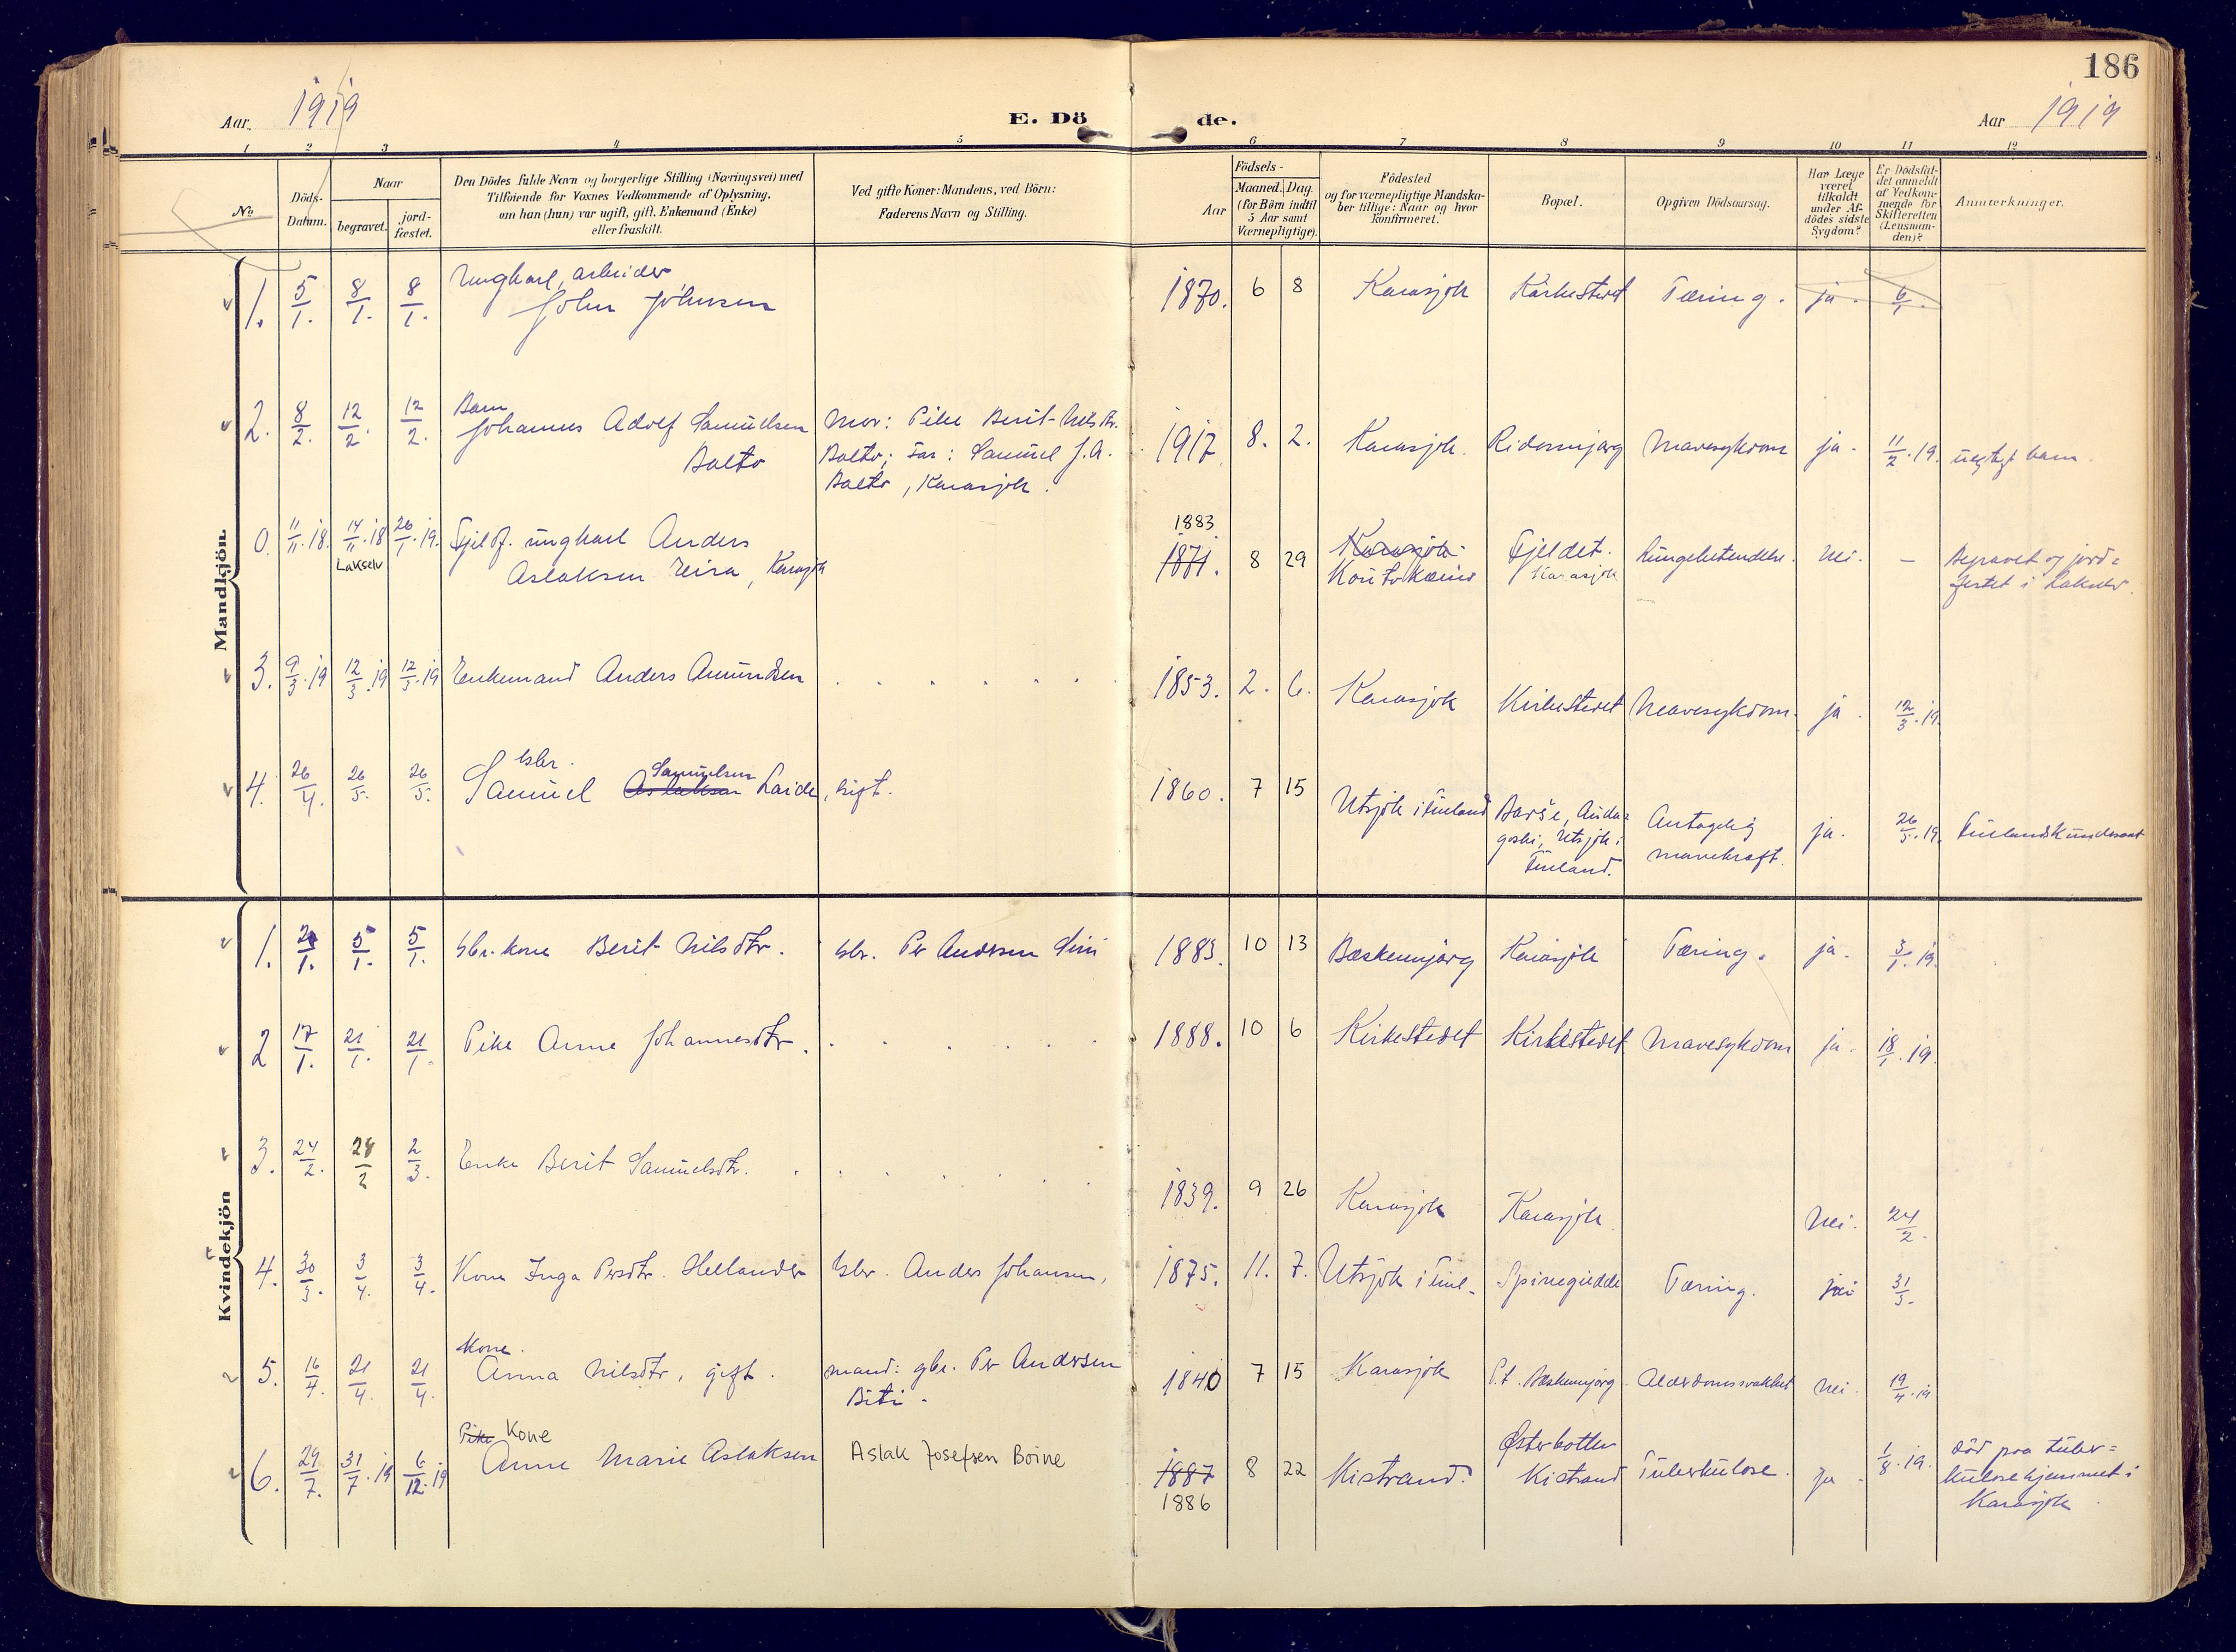 186
Aar 1919
E. Dö de.
Aar 1919
1 2 3 4 5 6 7 8 9 10 11 12
No
Döds-
Datum.
Naar
begravet.
jord-
fæstet.
Den Dödes fulde Navn og borgerlige Stilling (Næringsvei) med
Tilföiende for Voxnes Vedkommende af Oplysning,
om han (hun) var ugift, gift, Enkemand (Enke)
eller fraskilt.
Ved gifte Koner: Mandens, ved Börn:
Faderens Navn og Stilling.
Födsels-
Aar
Maaned. Dag.
(for Börn indtil
5 Aar samt
Værnepligtige).
Födested
og for værnepligtige Mandska-
ber tillige: Naar og hvor
konfirmeret.
Bopæl.
Opgiven Dödsaarsag.
Har Læge
været
tilkaldt
under Af-
dödes sidste
Sygdom?
Er Dödsfal-
det anmeldt
af Vedkom-
mende for
Skifteretten
(Lensman-
den)?
Anmerkninger.
Mandkjön.
1. 5/1. 8/1. 8/1. Ungkarl, arbeider
John Johnsen
1870. 6 8 Karasjok Kirkestedet Tæring. ja. 6/1.
2. 8/2. 12/2. 12/2. Barn
Johannes Adolf Samuelsen
Balto
Mor: Pike Berit Nilsdtr.
Balto; Far: Samuel J. A.
Balto, Karasjok.
1917 8. 2. Karasjok. Ridomnjarg Mavesykdom ja. 11/2.19. uegtgt barn.
0. 11/11.18. 14/11.18 26/1.19. Fjeldf. ungkarl Anders
Lakselv
Aslaksen Eira, Karasjok
1883
1871. 8 29 Karasjok
Koutokæino
Fjeldet.
Karasjok
Lungebetendelse. Nei. — Begravet og jord=
festet i Lakselv.
3. 9/3.19 12/3.19 12/3.19 Enkemand Anders Amundsen
1853. 2. 6. Karasjok Kirkestedet Mavesykdom. ja. 12/3.19.
4. 26/4. 26/5. 26/5. Gbr.
Samuel Aslaksen Samuelsen Laide, Gift.
1860. 7 15 Utsjok i Finland
Barše, Auda=
goski, Utsjok i
Finland.
Antagelig
mavekraft.
ja. 26/5.19. Finlandsk undersaat
Kvindekjön
1. 2/1. 5/1. 5/1. Gbr. kone Berit Nilsdtr. Gbr. Per Andersen Siri
1883. 10 13 Bæskennjarg Karasjok Tæring. ja. 3/1.19.
2 17/1. 21/1. 21/1. Pike Anne Johannesdtr.
1888. 10 6 Kirkestedet Kirkestedet Mavesykdom ja. 18/1.19.
3. 24/2. 28/2 2/3. Enke Berit Samuelsdtr.
1839. 9 26 Karasjok Karasjok. Nei. 24/2.
4. 30/3. 3/4. 3/4. Kone Inga Persdtr. Hellander Gbr. Anders Johansen,
1875. 11. 7. Utsjok i Finl. Spiinegiedde Tæring. ja 31/3.
5. 16/4. 21/4. 21/4. Kone.
Anna Nilsdtr, gift. Mand: gbr. Per Andersen
Biti.
1840 7 15 Karasjok P.t. Bæskennjarg Alderdomssvakhet Nei. 19/4.19
6. 29/7. 31/7.19 6/12.19 Pike Kone
Anne Marie Aslaksen Aslak Josefsen Boine
1887 8 22 Kistrand.
1886
Østerbotten
Kistrand Tuberkulose. Ja. 1/8.19. död paa tuber=
kulosehjemmet i
Karasjok.